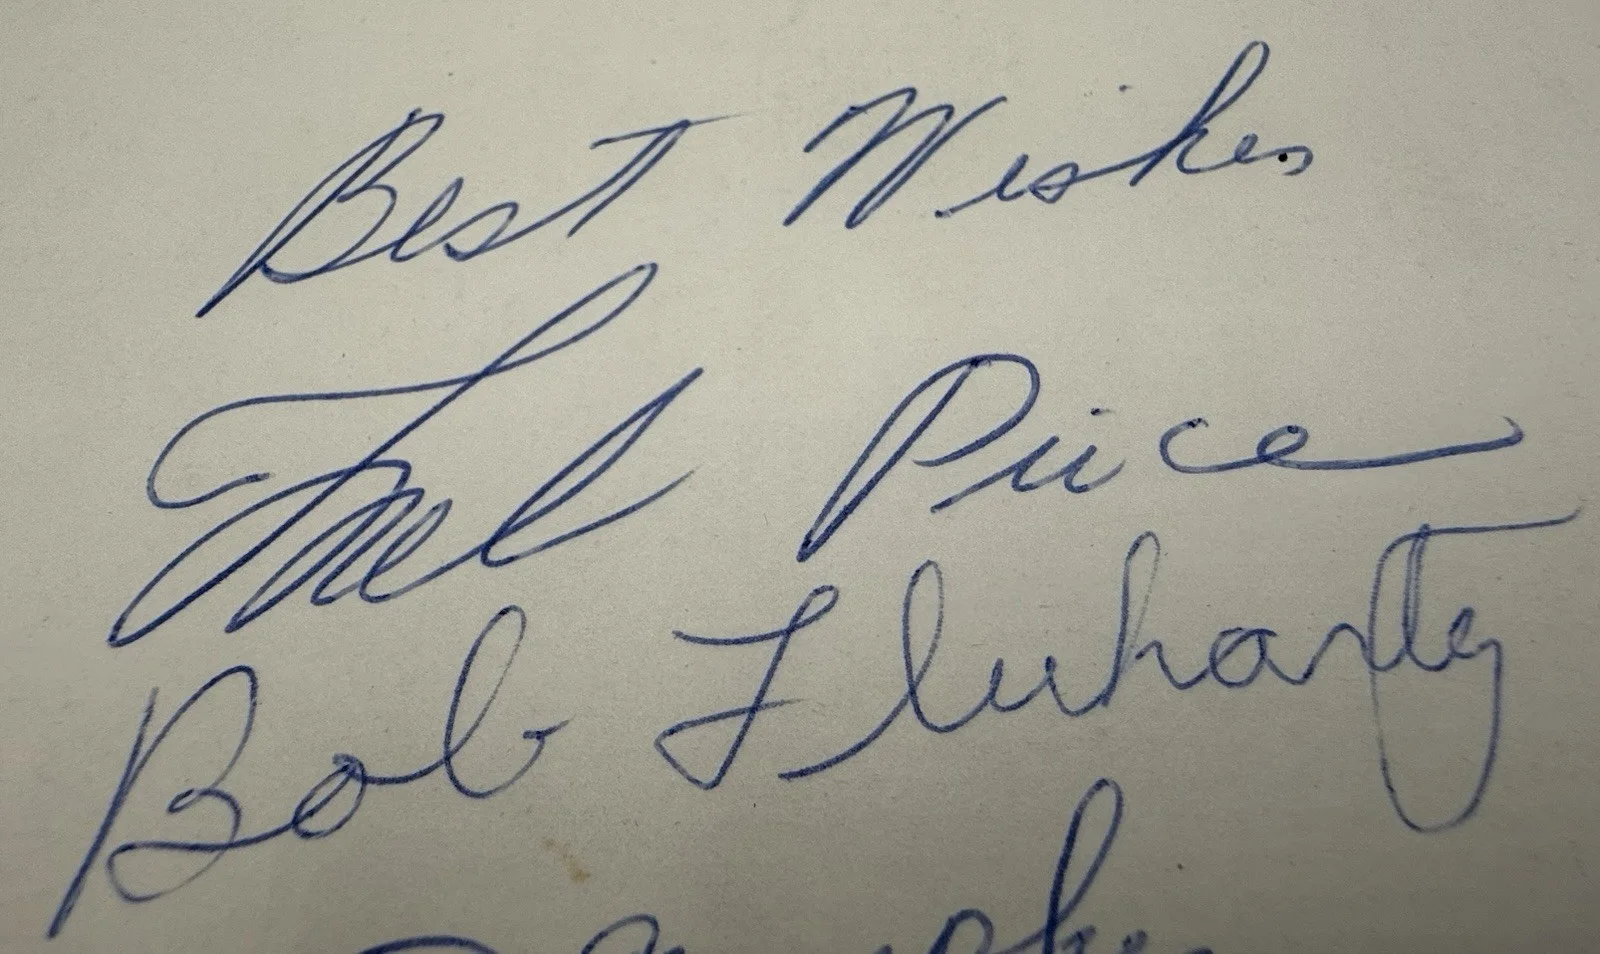 Best Wishes
Mel Price
Bob Fluharty